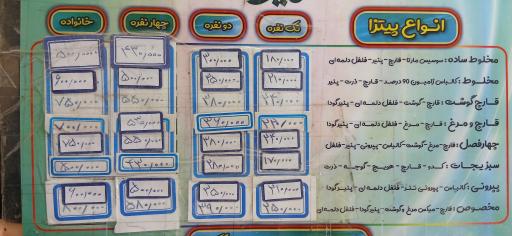 انواع پیتزا تک نفره دو نفره چهار نفره خانواده
مخلوط ساده: سوسیس مارتا - قارچ - پنیر - فلفل دلمه ای ۱۸۰/۰۰۰ ۳۰۰/۰۰۰ ۴۳۰/۰۰۰ ۵۰۰/۰۰۰
مخلوط: کالباس ژامبون 90 درصد - قارچ - ذرت - پنیر ۲۱۰/۰۰۰ ۳۵۰/۰۰۰ ۵۰۰/۰۰۰ ۶۰۰/۰۰۰
قارچ گوشت: قارچ - گوشت - فلفل دلمه ای - پنیر گودا ۲۴۰/۰۰۰ ۳۸۰/۰۰۰ ۵۵۰/۰۰۰ ۷۵۰/۰۰۰
قارچ و مرغ: قارچ - مرغ - فلفل دلمه ای - پنیر گودا ۲۳۰/۰۰۰ ۳۶۰/۰۰۰ ۵۴۰/۰۰۰ ۷۰۰/۰۰۰
چهار فصل: قارچ - مرغ - گوشت - کالباس - پپرونی - پنیر - فلفل ۲۴۰/۰۰۰ ۳۸۰/۰۰۰ ۵۵۰/۰۰۰ ۷۵۰/۰۰۰
سبزیجات: کدو - قارچ - هویج - گوجه - ذرت ۱۷۰/۰۰۰ ۲۸۰/۰۰۰ ۴۳۰/۰۰۰ ۵۰۰/۰۰۰
پپرونی: کالباس - پپرونی تند - فلفل دلمه ای - پنیر گودا ۲۱۰/۰۰۰ ۳۵۰/۰۰۰ ۵۰۰/۰۰۰ ۶۰۰/۰۰۰
مخصوص: قارچ - میکس مرغ و گوشت - پنیر گودا - فلفل دلمه ای ۲۵۰/۰۰۰ ۳۹۰/۰۰۰ ۵۸۰/۰۰۰ ۸۰۰/۰۰۰